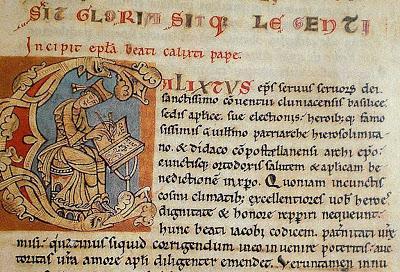 SIT GLORIA SITQ LEGENTI
Incipit epła beati calixti pape.
CALIXTUS eps seruus seruorũ dei.
sanctissimo conuentui cluniacensis basilicę.
sedis aplicę. suę electionis. heroibꝫ q; famo
sissimis Guillmo patriarchę hierosolimita
no. & didaco cõpostellanensi archi epo.
cunctisq; ortodoxis salutem & aplicam be
nedictionem in xpo. Quoniam in cunctis
cosmi climatibꝫ excellentiores uobis heroes
dignitate & honore repperiri nequeunt.
hunc beati iacobi codicem. paternitati urę
misi. quatinus siquid corrigendum in eo inuenire poteritis. auc
toritas ura amore apli diligenter emendet. Veruntamen innu